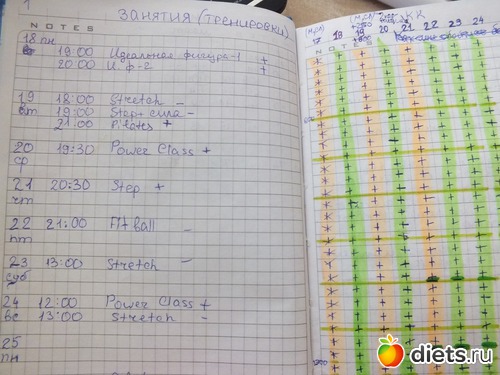 1
ЗАНЯТИЯ (ТРЕНИРОВКИ)
NOTES
18 пн
19:00 Идеальная фигура-1 +
20:00 И. ф-2 +
19 18:00 Stretch -
вт 19:00 Step + сила -
21:00 Pilates +
20 19:30 Power Class +
ср
21 20:30 Step +
чт
22 21:00 Fit ball -
пт
23 13:00 Stretch -
суб
24 12:00 Power Class +
вс 13:00 Stretch -
25
пн
КК
17 18 19 20 21 22 23 24
NOTES
diets.ru